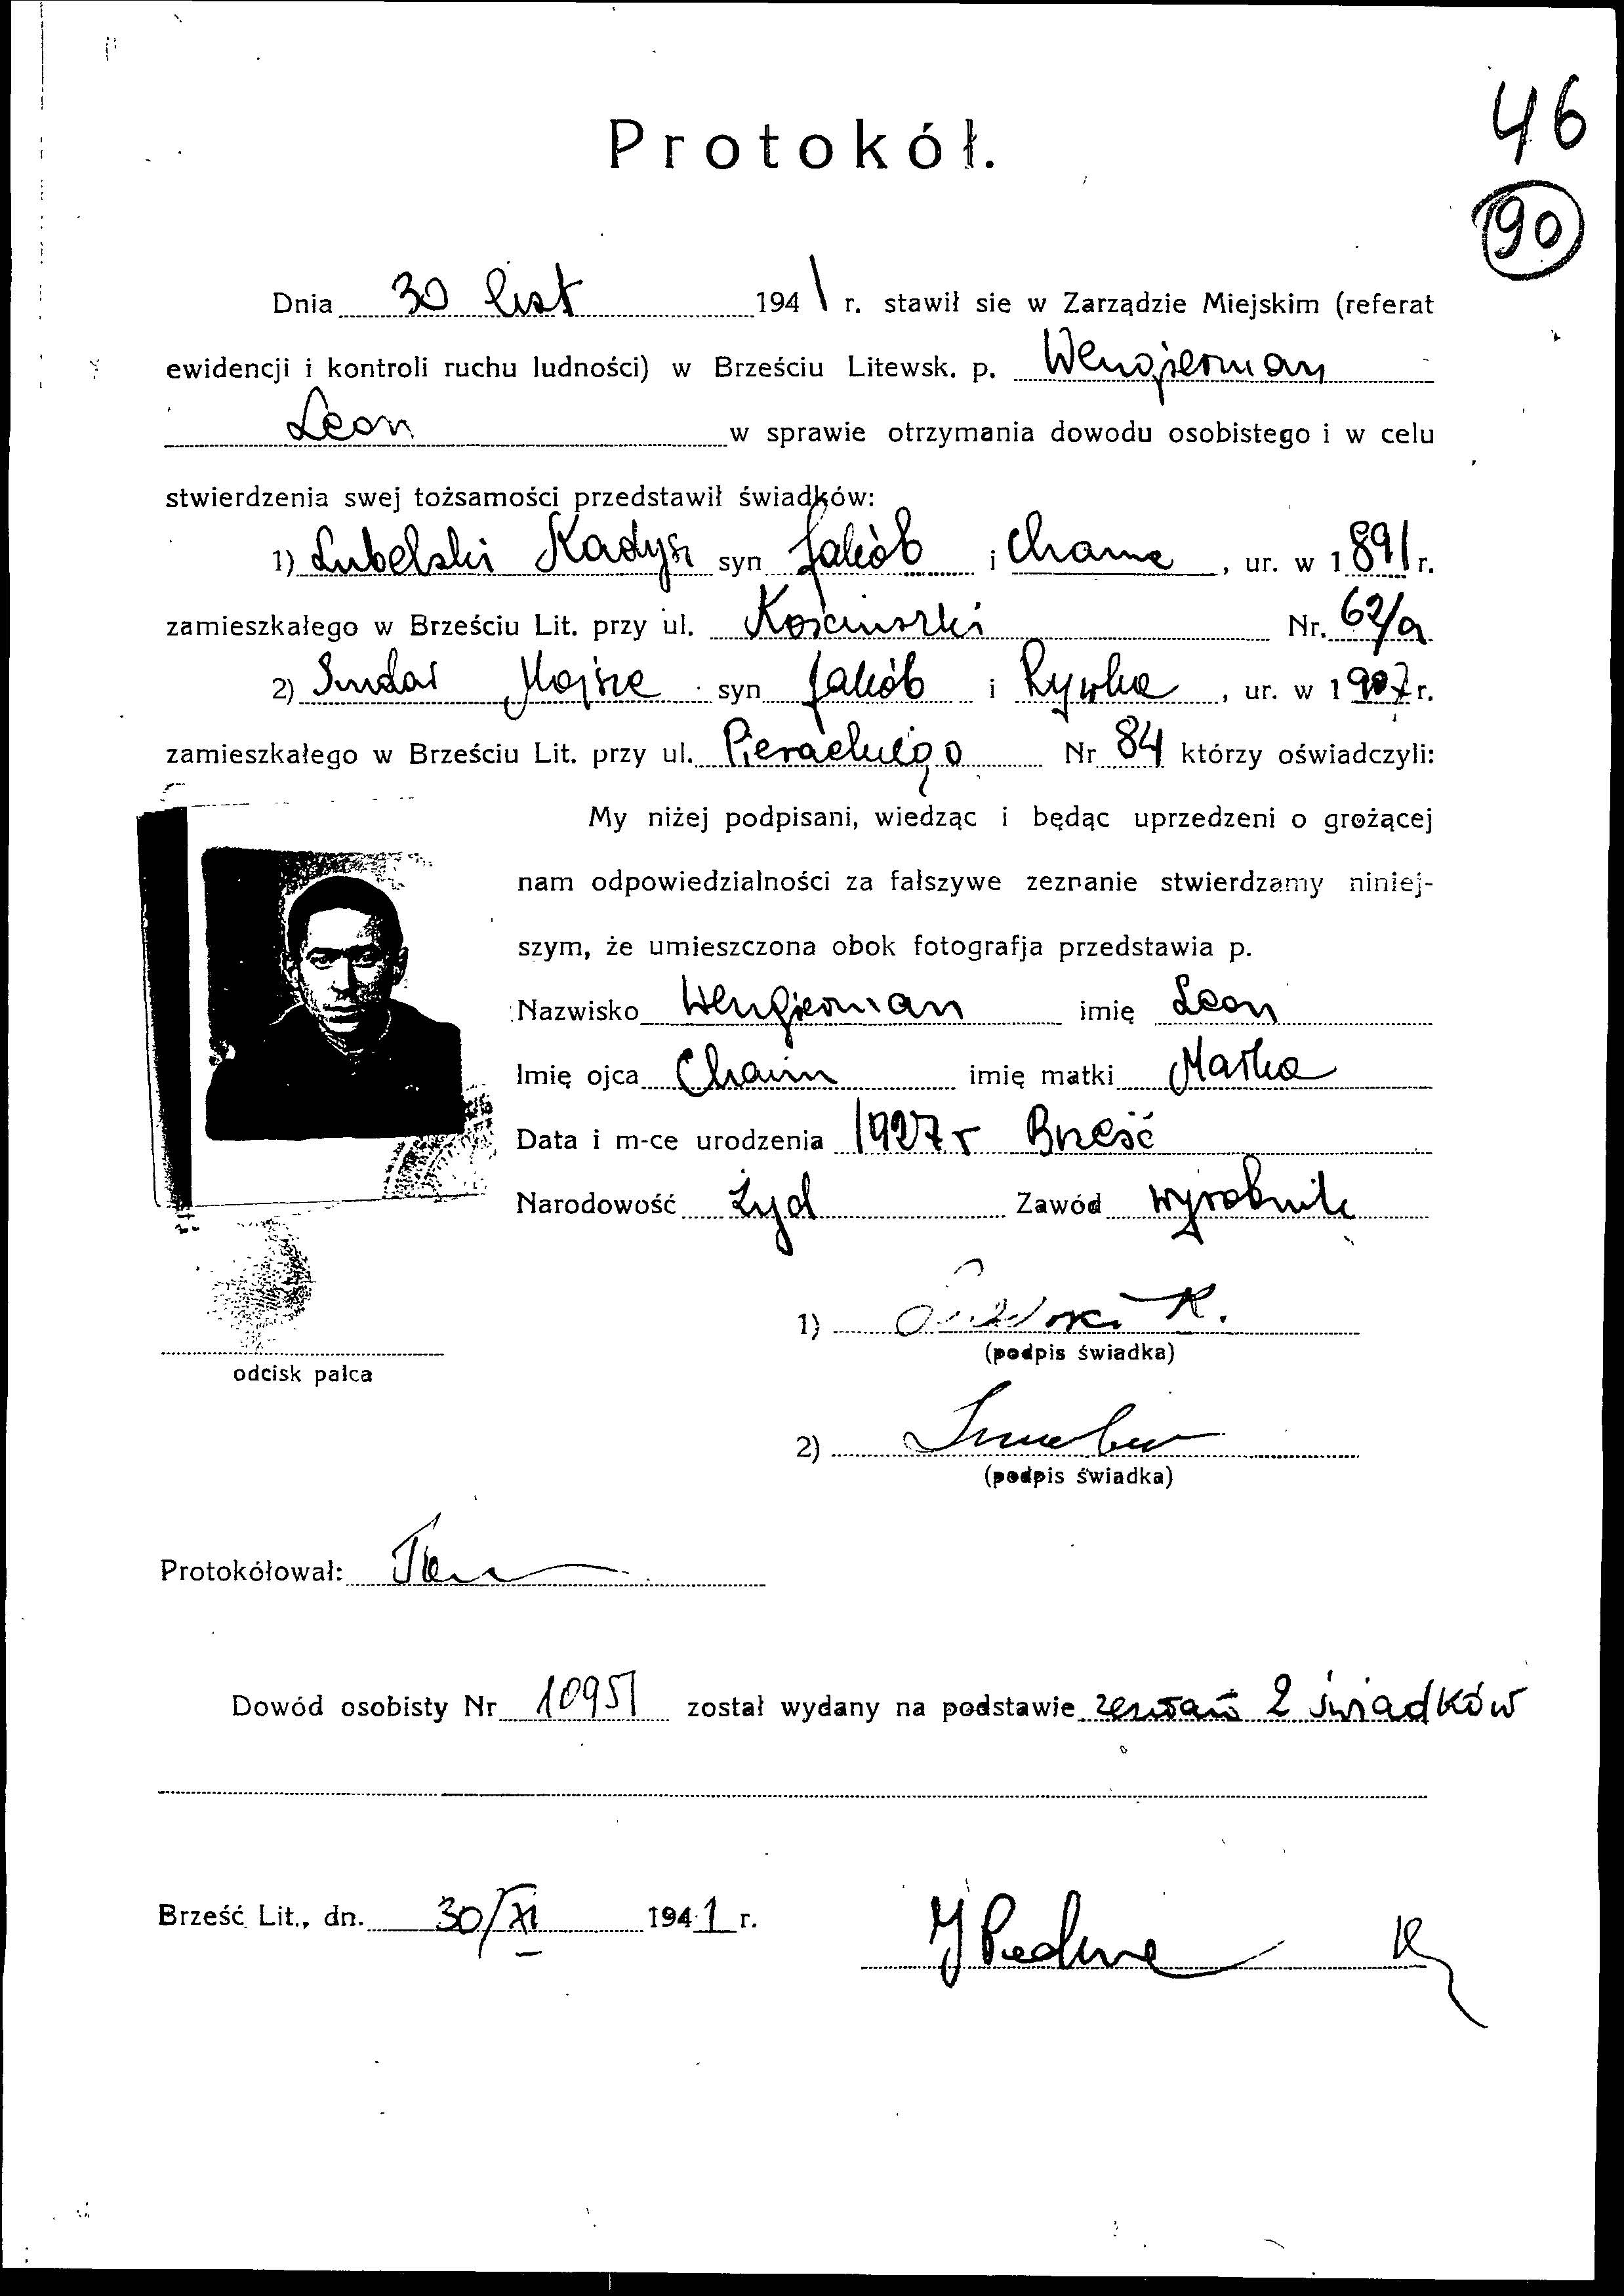 46
90
Protokół.
Dnia 30 list 1941 r. stawił sie w Zarządzie Miejskim (referat
ewidencji i kontroli ruchu ludności) w Brześciu Litewsk. p. Wengierman
Leon w sprawie otrzymania dowodu osobistego i w celu
stwierdzenia swej tożsamości przedstawił świadków:
1) Lubelski Kadysz syn Jakób i Chana, ur. w 1891 r.
zamieszkałego w Brześciu Lit. przy ul. Kościuszki Nr. 62/a
2) Mojsze syn Jakób i Rywka, ur. w 1907 r.
zamieszkałego w Brześciu Lit. przy ul. Pierackiego Nr 84 którzy oświadczyli:
My niżej podpisani, wiedząc i będąc uprzedzeni o grożącej
nam odpowiedzialności za fałszywe zeznanie stwierdzamy niniej-
szym, że umieszczona obok fotografja przedstawia p.
Nazwisko Wengierman imię Leon
Imię ojca Chaim imię matki Maśka
Data i m-ce urodzenia 1927 r Brześć
Narodowość Żyd Zawód wyrobnik
1)
(podpis świadka)
odcisk palca
2)
(podpis świadka)
Protokółował:
Dowód osobisty Nr 10951 został wydany na podstawie zeznań 2 świadków
Brześć Lit., dn. 30/XI 1941 r.